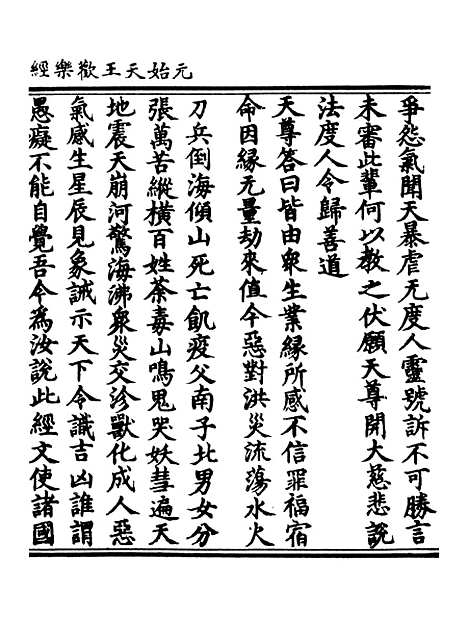 元始天王歡樂經
爭怨氣開天暴虐无度人靈號訴不可勝言
未審此輩何以教之伏願天尊開大慈悲說
法度人令歸善道
天尊答曰皆由衆生業緣所感不信罪福宿
命因緣无量劫來值今惡對洪災流蕩水火
刀兵倒海傾山死亡飢疫父南子北男女分
張萬苦縱橫百姓荼毒山鳴鬼哭妖彗遍天
地震天崩河驚海沸衆災交沴獸化成人惡
氣感生星辰見象誡示天下令識吉凶誰謂
愚癡不能自覺吾今爲汝說此經文使諸國